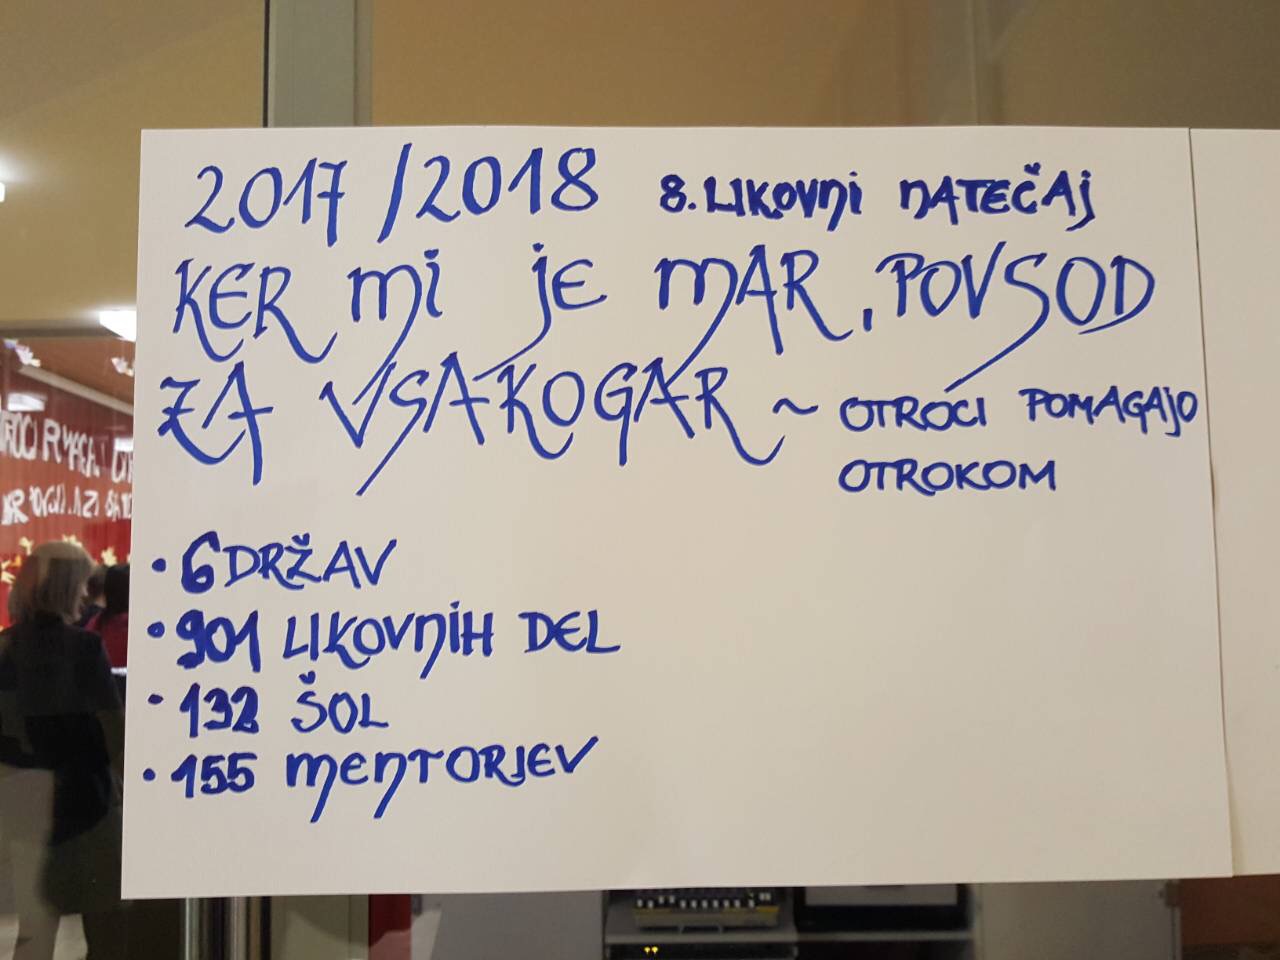 2017/2018 8. LIKOVNI NATEČAJ
KER MI JE MAR, POVSOD
ZA VSAKOGAR ~ OTROCI POMAGAJO
OTROKOM
• 6 DRŽAV
• 901 LIKOVNIH DEL
• 132 ŠOL
• 155 MENTORJEV